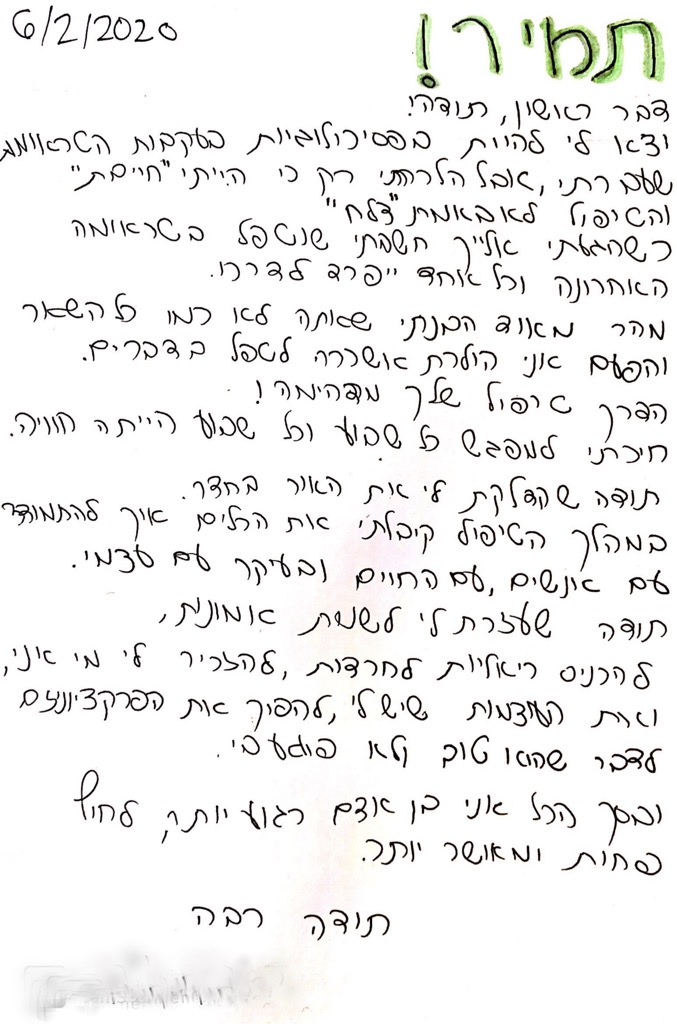 6/2/2020
תמיר!
דבר ראשון, תודה!
יצא לי להיות בפסיכולוגיות בעקבות הטראומות
שעברתי, אבל הלכתי רק כי הייתי "חייבת"
והטיפול לא באמת "צלח"
כשהגעתי אלייך חשבתי שנטפל בטראומה
האחרונה וכל אחד ייפרד לדרכו.
מהר מאוד הבנתי שאתה לא כמו כל השאר
והפעם אני הולכת אשכרה לטפל בדברים.
הדרך טיפול שלך מדהימה!
חיכיתי למפגש כל שבוע וכל שבוע הייתה חוויה.
תודה שהדלקת לי את האור בחדר.
במהלך הטיפול קיבלתי את הכלים איך להתמודד
עם אנשים, עם החיים ובעיקר עם עצמי.
תודה שעזרת לי לשנות אמונות,
להכניס ריאליות לחרדות, להזכיר לי מי אני,
ואת העוצמות שיש לי, להפוך את הפרקציוניזם
לדבר שהוא טוב ולא פוגע בי.
ובסך הכל אני בן אדם רגוע יותר, לחוץ
פחות ומאושר יותר.
תודה רבה